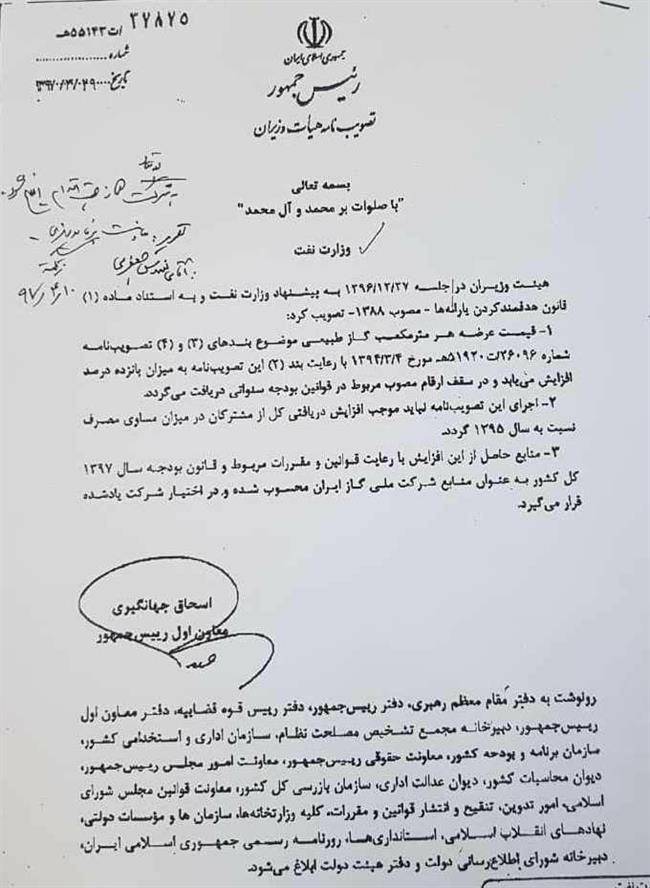 ۳۷۸۷۵/ت۵۵۱۴۳هـ
شماره
تاریخ ۱۳۹۷/۰۳/۲۹
جمهوری اسلامی ایران
رئیس جمهور
تصویب نامه هیأت وزیران
بسمه تعالی
"با صلوات بر محمد و آل محمد"
وزارت نفت
۹۷/۴/۱۰
هیئت وزیران در جلسه ۱۳۹۶/۱۲/۲۷ به پیشنهاد وزارت نفت و به استناد ماده (۱)
قانون هدفمندکردن یارانه‌ها - مصوب ۱۳۸۸- تصویب کرد:
۱- قیمت عرضه هر مترمکعب گاز طبیعی موضوع بندهای (۳) و (۴) تصویب‌نامه
شماره ۲۶۰۹۶/ت۵۱۹۲۰هـ مورخ ۱۳۹۴/۳/۴ با رعایت بند (۲) این تصویب‌نامه به میزان پانزده درصد
افزایش می‌یابد و در سقف ارقام مصوب مربوط در قوانین بودجه سنواتی دریافت می‌گردد.
۲- اجرای این تصویب‌نامه نباید موجب افزایش دریافتی کل از مشترکان در میزان مساوی مصرف
نسبت به سال ۱۳۹۵ گردد.
۳- منابع حاصل از این افزایش با رعایت قوانین و مقررات مربوط و قانون بودجه سال ۱۳۹۷
کل کشور به عنوان منابع شرکت ملی گاز ایران محسوب شده و در اختیار شرکت یادشده
قرار می‌گیرد.
اسحاق جهانگیری
معاون اول رییس‌جمهور
رونوشت به دفتر مقام معظم رهبری، دفتر رییس‌جمهور، دفتر رییس قوه قضاییه، دفتر معاون اول
رییس‌جمهور، دبیرخانه مجمع تشخیص مصلحت نظام، سازمان اداری و استخدامی کشور،
سازمان برنامه و بودجه کشور، معاونت حقوقی رییس‌جمهور، معاونت امور مجلس رییس‌جمهور،
دیوان محاسبات کشور، دیوان عدالت اداری، سازمان بازرسی کل کشور، معاونت قوانین مجلس شورای
اسلامی، امور تدوین، تنقیح و انتشار قوانین و مقررات، کلیه وزارتخانه‌ها، سازمان ها و مؤسسات دولتی،
نهادهای انقلاب اسلامی، استانداری‌ها، روزنامه رسمی جمهوری اسلامی ایران،
دبیرخانه شورای اطلاع‌رسانی دولت و دفتر هیئت دولت ابلاغ می‌شود.